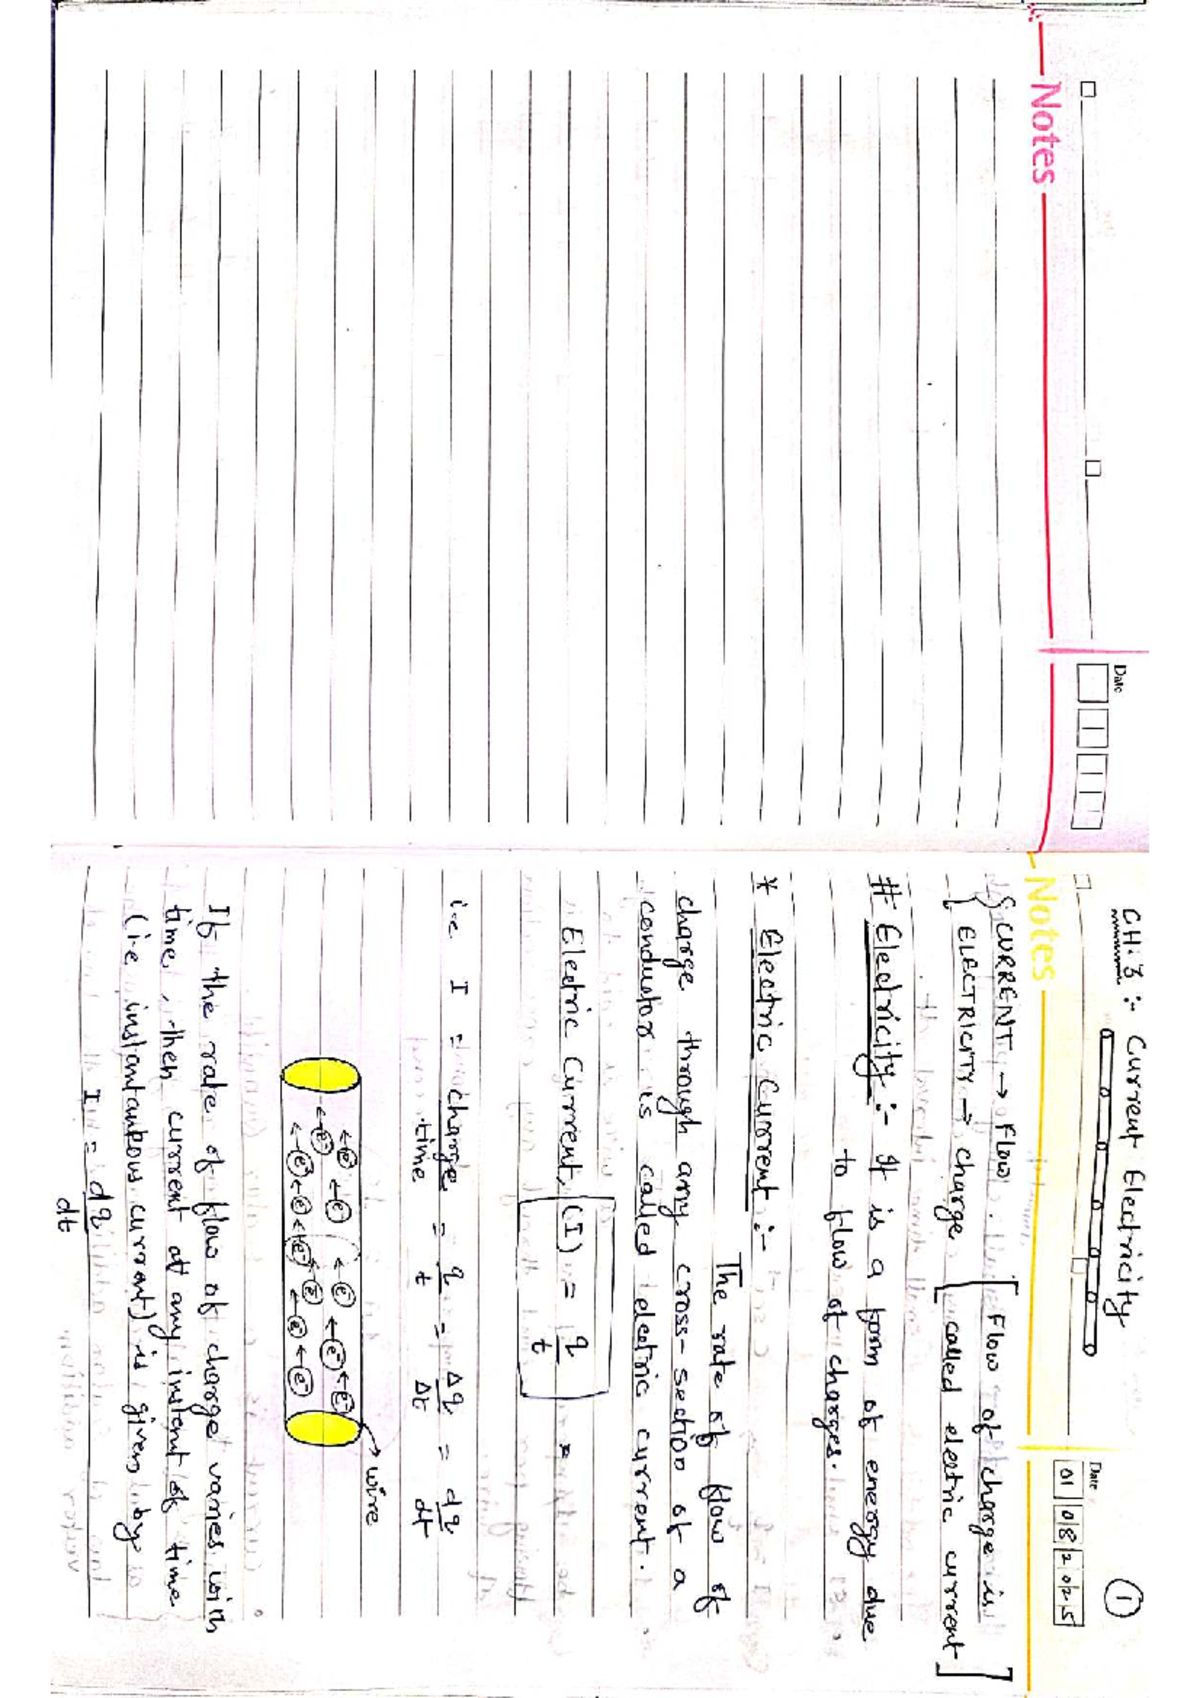 Notes
Date
CH:3 :- Current Electricity
1
Date
01 08 2025
Notes
{ CURRENT → Flow.
{ ELECTRICITY → charge
[ Flow of charge is
called electric current ]
# Electricity :- It is a form of energy due
to flow of charges.
* Electric Current :-
The rate of flow of
charge through any cross-section of a
conductor is called electric current.
Electric Current, (I) = q/t
i.e I = charge/time = q/t = Δq/Δt = dq/dt
→ wire
←e⁻ ←e⁻ ←e⁻ ←e⁻ ←e⁻
←e⁻ ←e⁻ ←e⁻ ←e⁻ ←e⁻ ←e⁻ ←e⁻
If the rate of flow of charge varies with
time, then current at any instent of time
(i.e instantaneous current) is given by
I = dq/dt